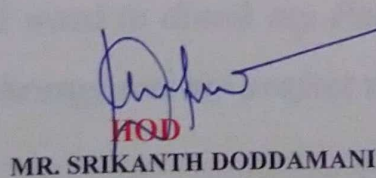 HOD
MR. SRIKANTH DODDAMANI